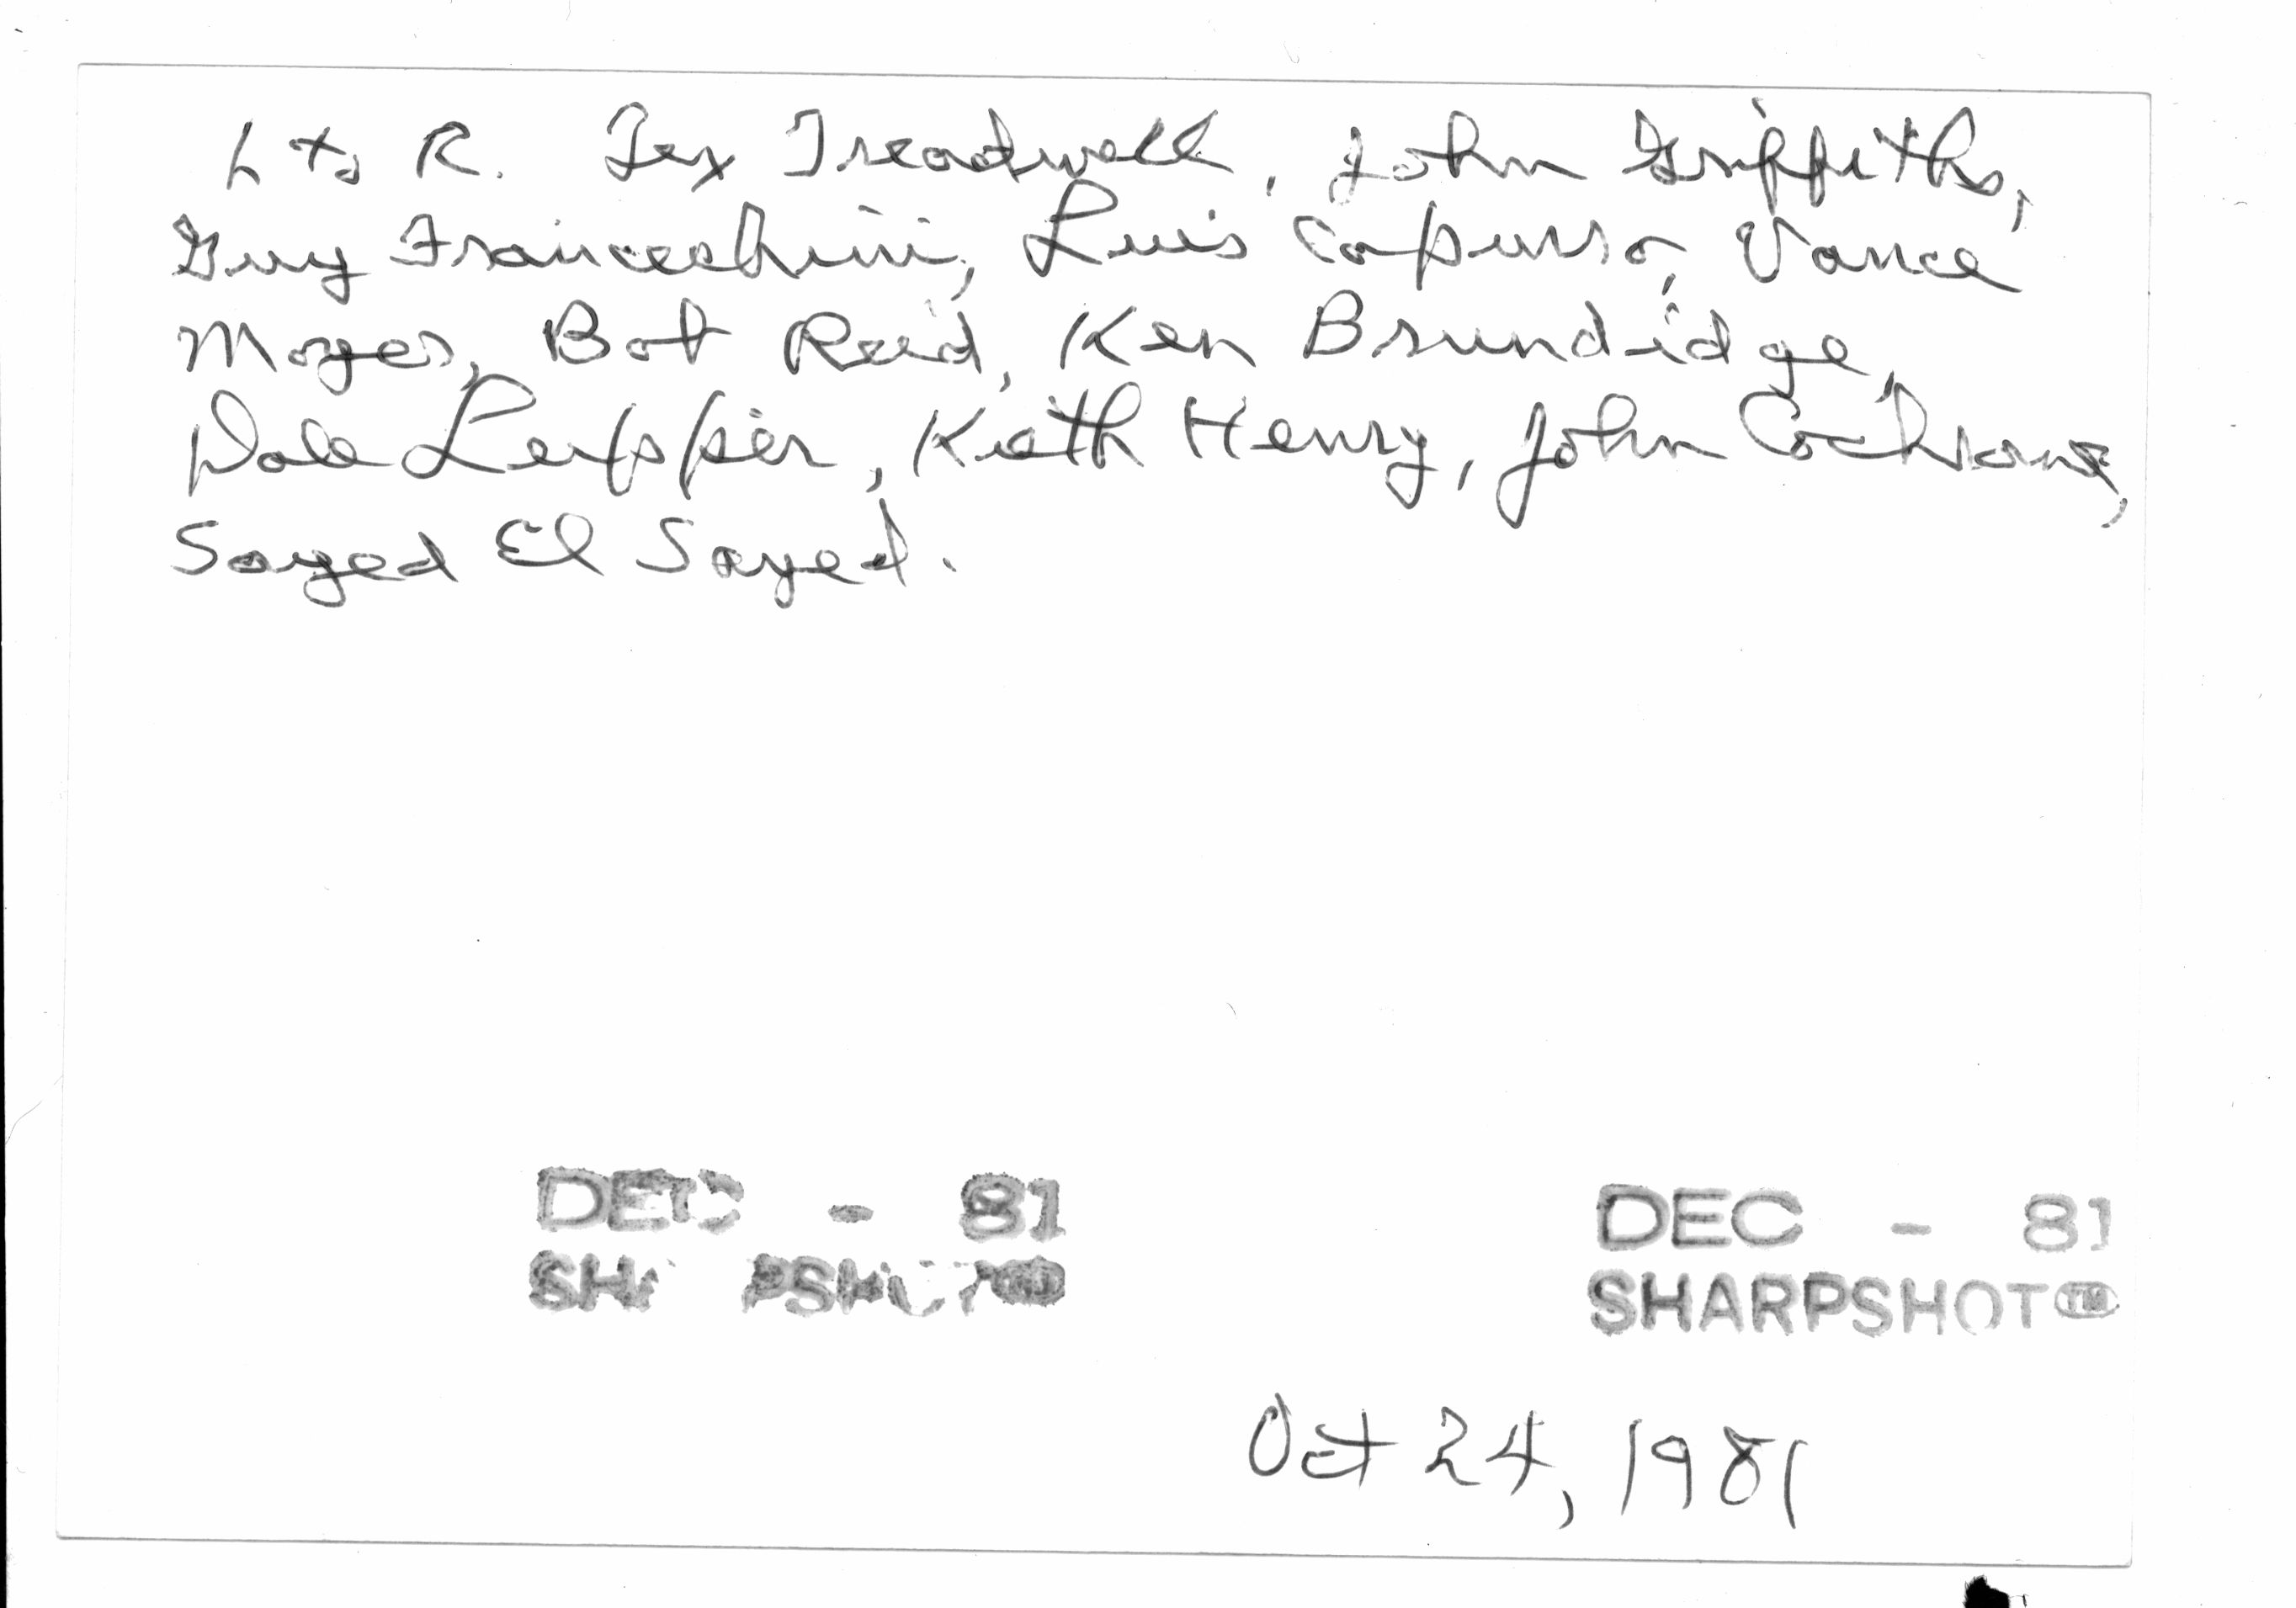 L to R. Tex Treadwell, John Griffiths,
Guy Franceschini, Luis Capurro, Vance
Moyer, Bob Reid, Ken Brundidge,
Dale Leipper, Keith Henry, John Cochrane,
Sayed El Sayed.
DEC - 81
DEC - 81
SHARPSHOT TM
Oct 24, 1981